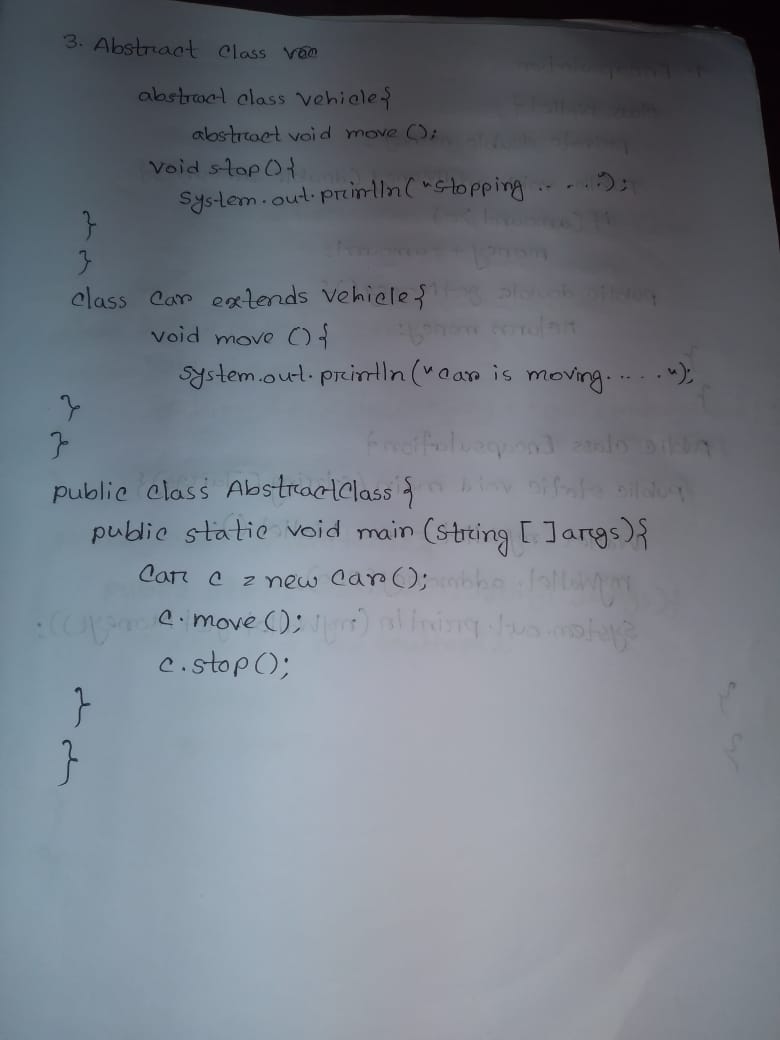 3. Abstract Class
abstract class Vehicle{
abstract void move ();
void stop(){
System.out.println("Stopping .. . . .");
}
}
class Car extends Vehicle{
void move (){
System.out.println("Car is moving..... . ");
}
}
public class AbstractClass {
public static void main (String [ ] args){
Car c = new Car();
c.move();
c.stop();
}
}